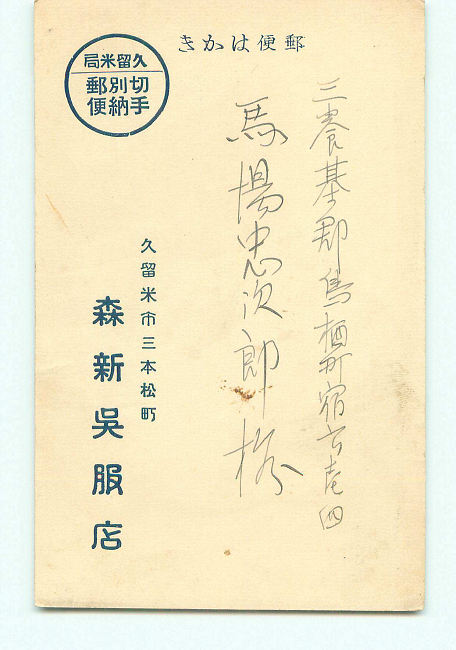 郵便はかき
三養基郡鳥栖町宿六壱四
馬場忠次郎様
久留米局
切手
別納
郵便
久留米市三本松町
森新吳服店